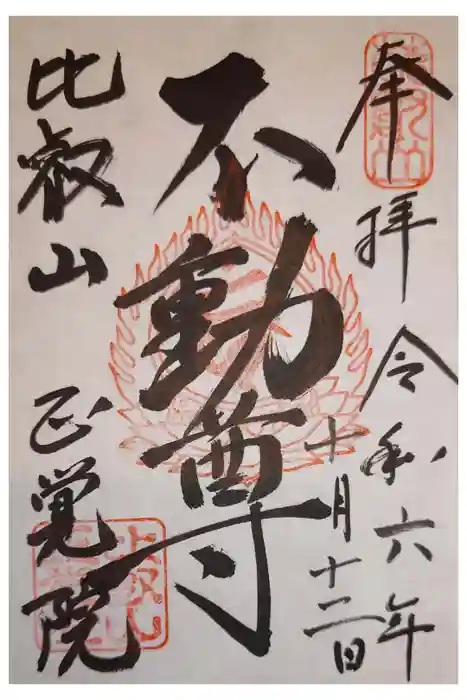 奉拝
令和六年
十月十二日
不動尊
比叡山
正覚院